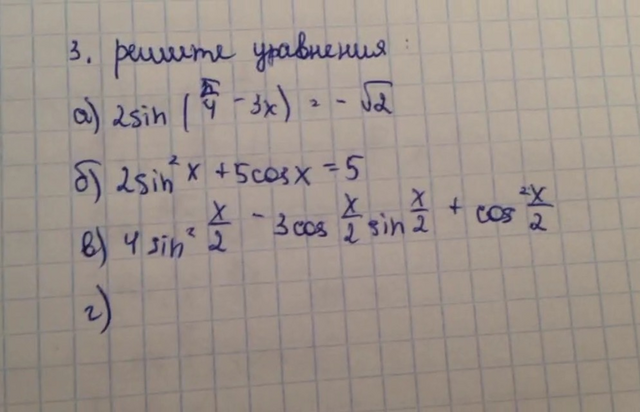 3. решите уравнения :
а) 2sin (π/4 - 3x) = - √2
б) 2sin² x + 5cosx = 5
в) 4 sin² x/2 - 3cos x/2 sin x/2 + cos² x/2
г)